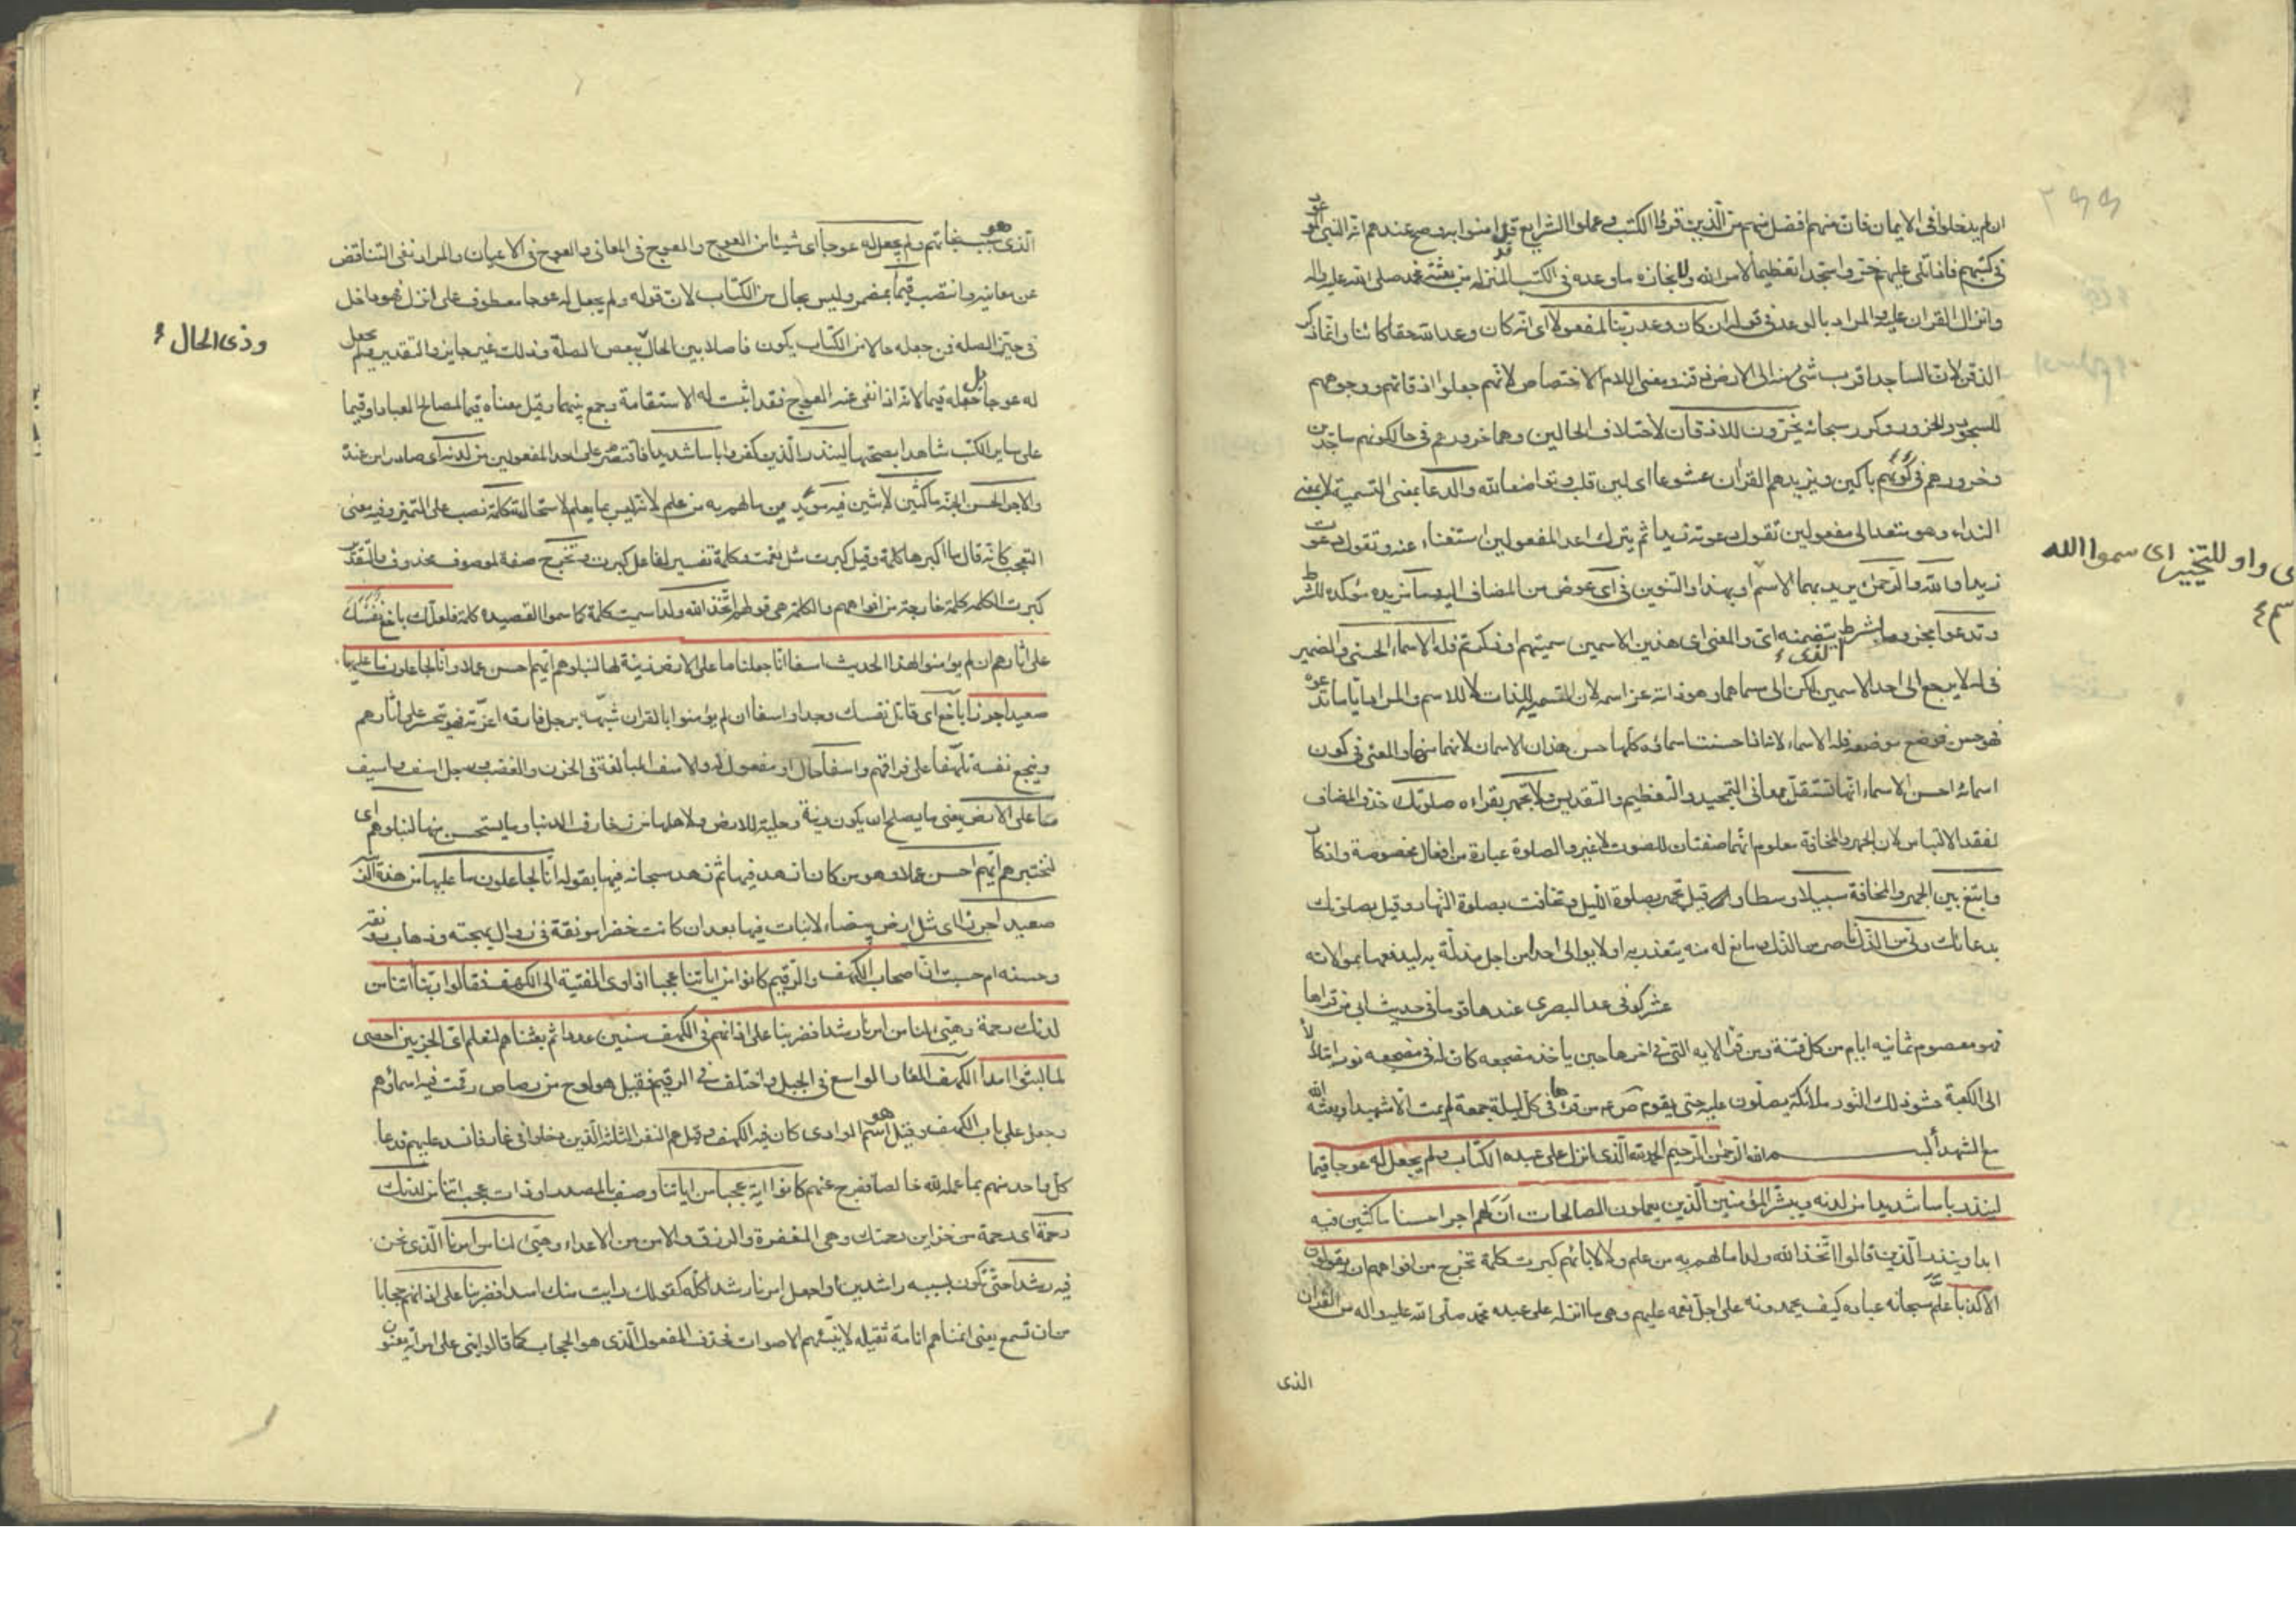 ان لم يدخلوا فى الايمان فان منهم افضل منهم من الذين قرؤا الكتب و عملوا الشرايع قد امنوا به و صح عندهم انه النبى الموعود
فى كتبهم فاذا تلى عليهم خروا سجدا تعظيما لامر الله و لانجازه ما وعده فى الكتب المنزله من بعثة محمد صلى الله عليه واله
وانزال القران عليه و المراد بالوعد فى قوله ان كان وعد ربنا لمفعولا اى انه كان وعد الله حقا كائنا وانما ذكر
الذقن لان الساجد اقرب شئ منه الى الارض ذقنه و معنى اللام الاختصاص لانهم جعلوا اذقانهم و وجوههم
للسجود و الخرور و كرر سبحانه يخرون للاذقان لاختلاف الحالين وهما خرورهم فى حال كونهم ساجدين
وخرورهم فى كونهم باكين و يزيدهم القران خشوعا اى لين قلب و تواضعا لله والدعا بمعنى التسمية لا بمعنى
النداء وهو متعد الى مفعولين تقول دعوته زيدا ثم يترك احد المفعولين استغناء عنه و تقول دعوت
زيدا والله والرحمن يريد بهما الاسم او بهذا والتنوين فى اى عوض من المضاف اليه وما مزيده مؤكده للشرط
و تدعوا مجزوم بالشرط الذى يتضمنه اى و المعنى اى هذين الاسمين سميتم او ذكرتم فله الاسماء الحسنى والضمير
فى له لا يرجع الى احد الاسمين لكن الى مسماهما وهو ذاته عز اسمه لان التسمية للذات لا للاسم والمراد ايا ما تدعوه
فهو حسن فوضع موضعه فله الاسماء لانه اذا حسنت اسمائه كلها حسن هذان الاسمان لانهما منها والمعنى فى كون
اسمائه احسن الاسماء انها تستقل بمعانى التمجيد والتعظيم والتقديس ولا تجهر بقراءه صلوتك حذف المضاف
لفقد الالباس لان الجهر والمخافة معلوم انهما صفتان للصوت لا غير والصلوة عبارة من افعال مخصوصة واذكار
وابتغ بين الجهر والمخافة سبيلا وسطا و قيل تجهر بصلوة الليل و تخافت بصلوة النهار و قيل بصلوتك
بدعائك ولى من الذل ناصر من الذل ومانع له منه يتعذب به اولا يوالى احدا من اجل مذلة به ليدفعها بموالاته
عشر كوفى عد البصرى عندها قوما فى حديث ابى من قراها
فهو معصوم ثمانيه ايام من كل فتنة ومن قرا الايه التى فى اخرها حين ياخذ مضجعه كان له فى مضجعه نور يتلألأ
الى الكعبة حشو ذلك النور ملائكة يصلون عليه حتى يقوم ص ع من قراها فى كل ليلة جمعة لم يمت الا شهيدا و بعثه الله
مع الشهدا بسم الله الرحمن الرحيم الحمد لله الذى انزل على عبده الكتاب ولم يجعل له عوجا قيما
لينذر باسا شديدا من لدنه و يبشر المؤمنين الذين يعملون الصالحات ان لهم اجرا حسنا ماكثين فيه
ابدا و ينذر الذين قالوا اتخذ الله ولدا ما لهم به من علم ولا لابائهم كبرت كلمة تخرج من افواههم ان يقولون
الا كذبا علم سبحانه عباده كيف يحمدونه على اجل نعمه عليهم وهى ما انزله على عبده محمد صلى الله عليه واله من القران
الذى
اى واو للتخيير اى سموا الله
الذى هو سبب نجاتهم ولم يجعل له عوجا اى شيئا من العوج والعوج فى المعانى والعوج فى الاعيان والمراد نفى التناقض
عن معانيه وانتصب قيما بمضمر وليس بحال من الكتاب لان قوله ولم يجعل له عوجا معطوف على انزل فهو داخل
فى حيز الصله فمن جعله حالا من الكتاب يكون فاصلا بين الحال ببعض الصلة وذلك غير جايز والتقدير ولم يجعل
وذى الحال
له عوجا بل جعله قيما لانه اذا نفى عنه العوج فقد اثبت له الاستقامة وجمع بينهما وقيل معناه قيما لمصالح العباد او قيما
على ساير الكتب شاهدا بصحتها لينذر الذين كفروا باسا شديدا فاقتصر على احد المفعولين من لدنه اى صادرا من عنده
والاجر الحسن الجنة ماكثين لابثين فيه مؤبدين ما لهم به من علم لانه ليس بما يعلم لاستحالته كلمة نصب على التميز وفيه معنى
التعجب كانه قال ما اكبرها كلمة وقيل كبرت مثل نعمت وكلمة تفسير لفاعل كبرت و تخرج صفة لموصوف محذوف والتقدير
كبرت الكلمه كلمة خارجة من افواههم والكلمة هى قولهم اتخذ الله ولدا سميت كلمة كما سموا القصيده كلمة فلعلك باخع نفسك
على اثارهم ان لم يؤمنوا بهذا الحديث اسفا انا جعلنا ما على الارض زينة لها لنبلوهم ايهم احسن عملا وانا لجاعلون ما عليها
صعيدا جرزا باخع اى قاتل نفسك وجدا و اسفا ان لم يؤمنوا بالقران شبهه برجل فارقه اعزته فهو يتحسر على اثارهم
ويبخع نفسه تلهفا على فراقهم واسفا حال او مفعول له والاسف المبالغة فى الحزن والغضب ورجل اسف واسيف
ما على الارض يعنى ما يصلح ان يكون زينة وحلية للارض ولاهلها من زخارف الدنيا وما يستحسن منها لنبلوهم اى
لنختبرهم ايهم احسن عملا وهو من كان ازهد فيها ثم زهد سبحانه فيها بقوله انا لجاعلون ما عليها من هذه الزينة
صعيدا جرزا اى مثل ارض بيضاء لا نبات فيها بعد ان كانت خضرا مونقة فى زوال بهجته وذهاب رونقه
وحسنه ام حسبت ان اصحاب الكهف والرقيم كانوا من اياتنا عجبا اذ اوى الفتية الى الكهف فقالوا ربنا اتنا من
لدنك رحمة وهيئ لنا من امرنا رشدا فضربنا على اذانهم فى الكهف سنين عددا ثم بعثناهم لنعلم اى الحزبين احصى
لما لبثوا امدا الكهف الغار الواسع فى الجبل واختلف فى الرقيم فقيل هو لوح من رصاص رقمت فيه اسماؤهم
وجعل على باب الكهف وقيل هو اسم الوادى كان فيه الكهف وقيل هم النفر الثلثة الذين دخلوا فى غار فانسد عليهم فدعا
كل واحد منهم بما عمله لله خالصا ففرج عنهم كانوا اية عجبا من اياتنا وصف بالمصدر او ذات عجب اتنا من لدنك
رحمة اى رحمة من خزاين رحمتك وهى المغفرة والرزق والامن من الاعداء وهيئ لنا من امرنا الذى نحن
فيه رشدا حتى نكون بسببه راشدين او اجعل امرنا رشدا كله كقولك رايت منك اسدا فضربنا على اذانهم حجابا
من ان تسمع يعنى انمناهم انامة ثقيله لا ينبههم الاصوات فحذف المفعول الذى هو الحجاب كما قالوا بنى على امراته يعنون